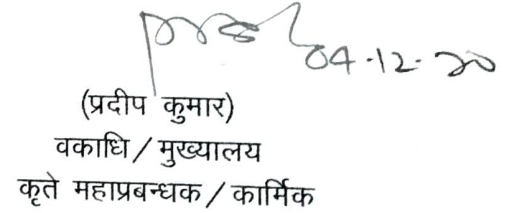 04.12.20
(प्रदीप कुमार)
वकाधि / मुख्यालय
कृते महाप्रबन्धक / कार्मिक